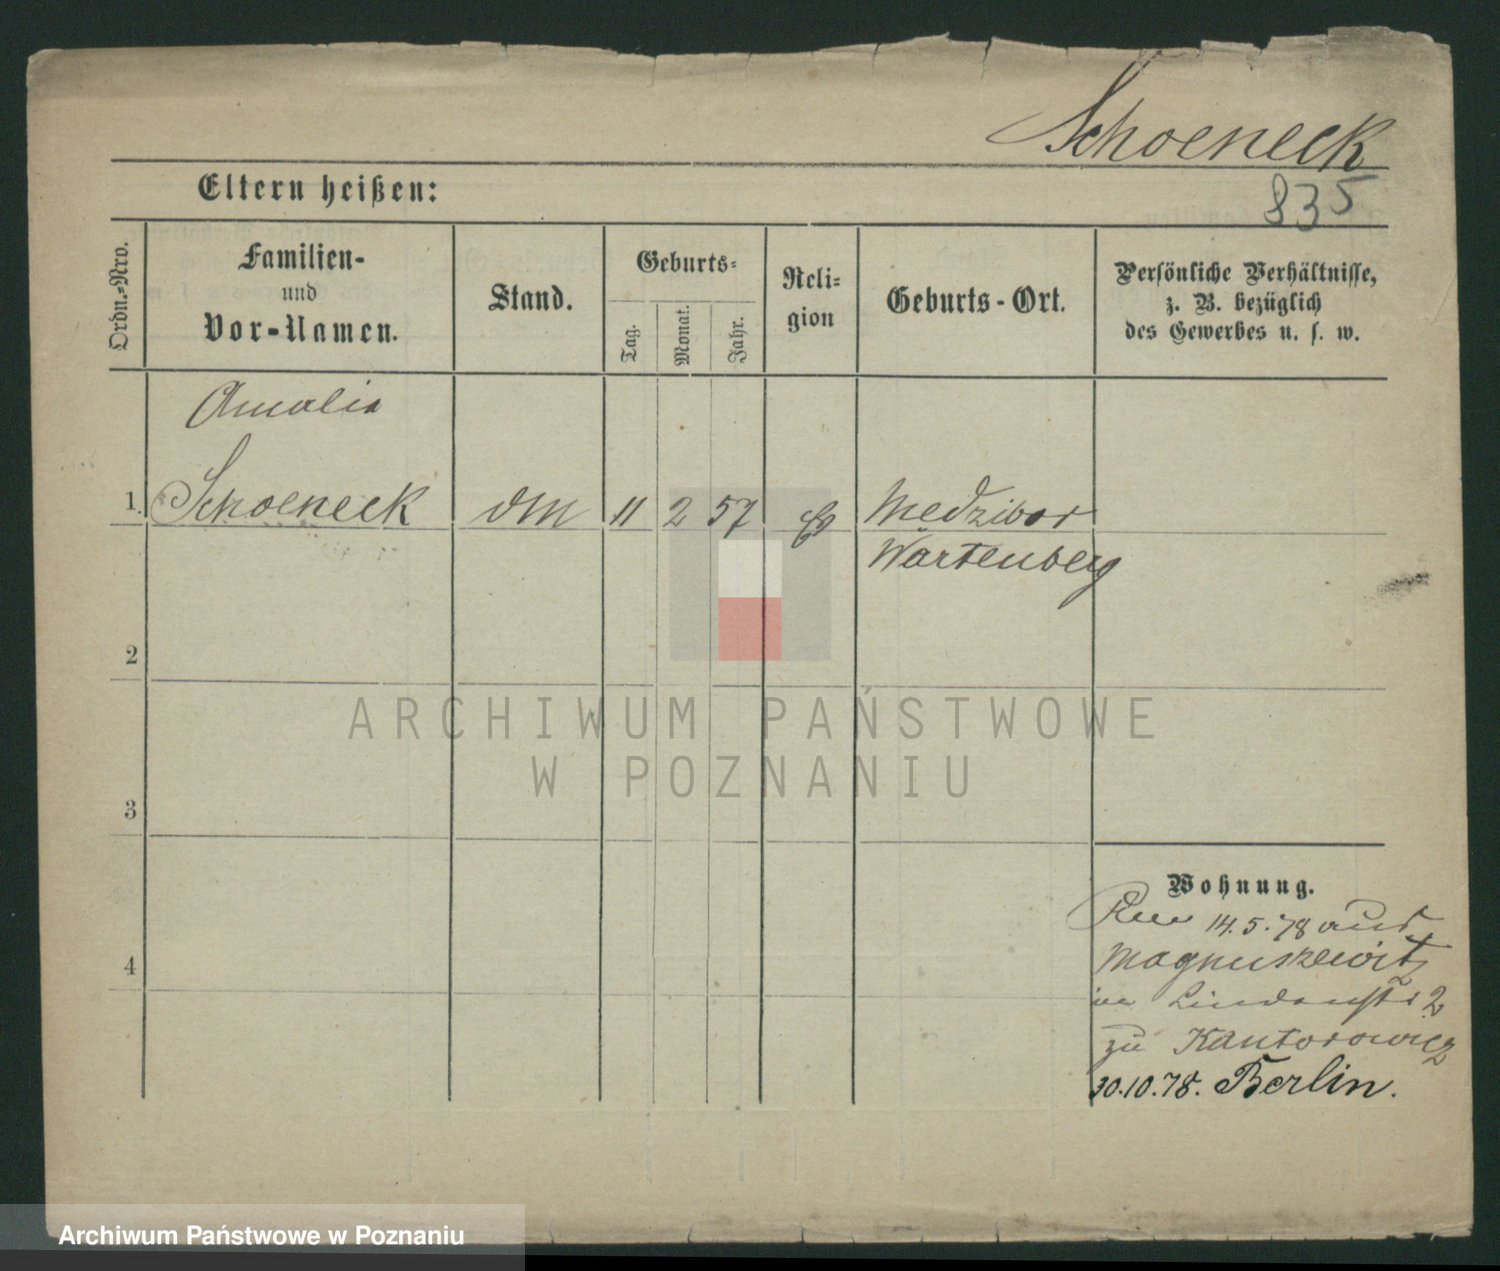 Schoeneck
Eltern heißen:
835
Ordn.-Nro.
Familien-
und
Vor-Namen.
Stand.
Geburts-
Tag.
Monat.
Jahr.
Reli-
gion
Geburts-Ort.
Persönliche Verhältnisse,
z. B. bezüglich
des Gewerbes u. s. w.
Amalie
1. Schoeneck DM 11 2 57 Medzibor
Wartenberg
2
3
4
ARCHIWUM PAŃSTWOWE
W POZNANIU
Wohnung.
14.5.78 aus
Magnuszewitz
in Lindenstr 2
zu Kantorowicz
30.10.78. Berlin.
Archiwum Państwowe w Poznaniu